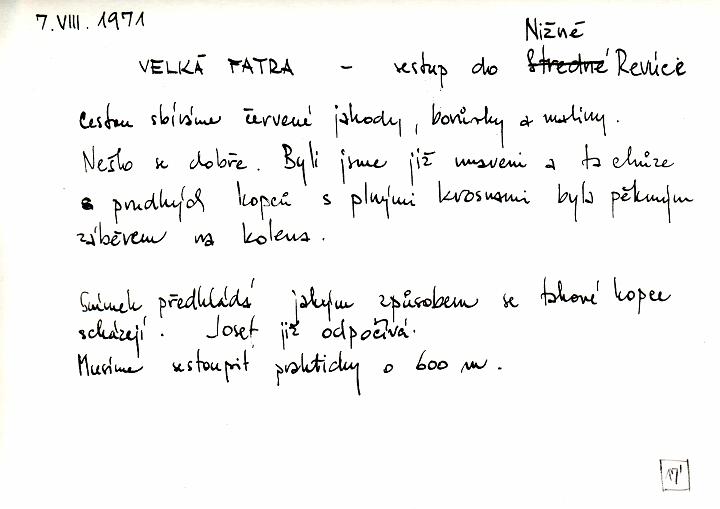 7. VIII. 1971
Nižné
VELKÁ FATRA – sestup do Stredné Revúce
Cestou sbíráme červené jahody, borůvky a maliny.
Nešlo se dobře. Byli jsme již unaveni a ta chůze
s prudkých kopců s plnými krosnami byla pěkným
záběrem na kolena.
Snímek předkládá jakým způsobem se takové kopce
scházejí. Josef již odpočívá.
Musíme sestoupit prakticky o 600 m.
17'